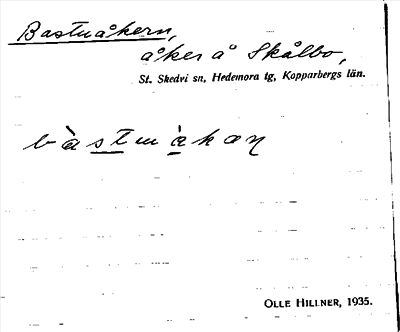 Bastuåkern,
åker å Skålbo,
St. Skedvi sn, Hedemora tg, Kopparbergs län.
OLLE HILLNER, 1935.